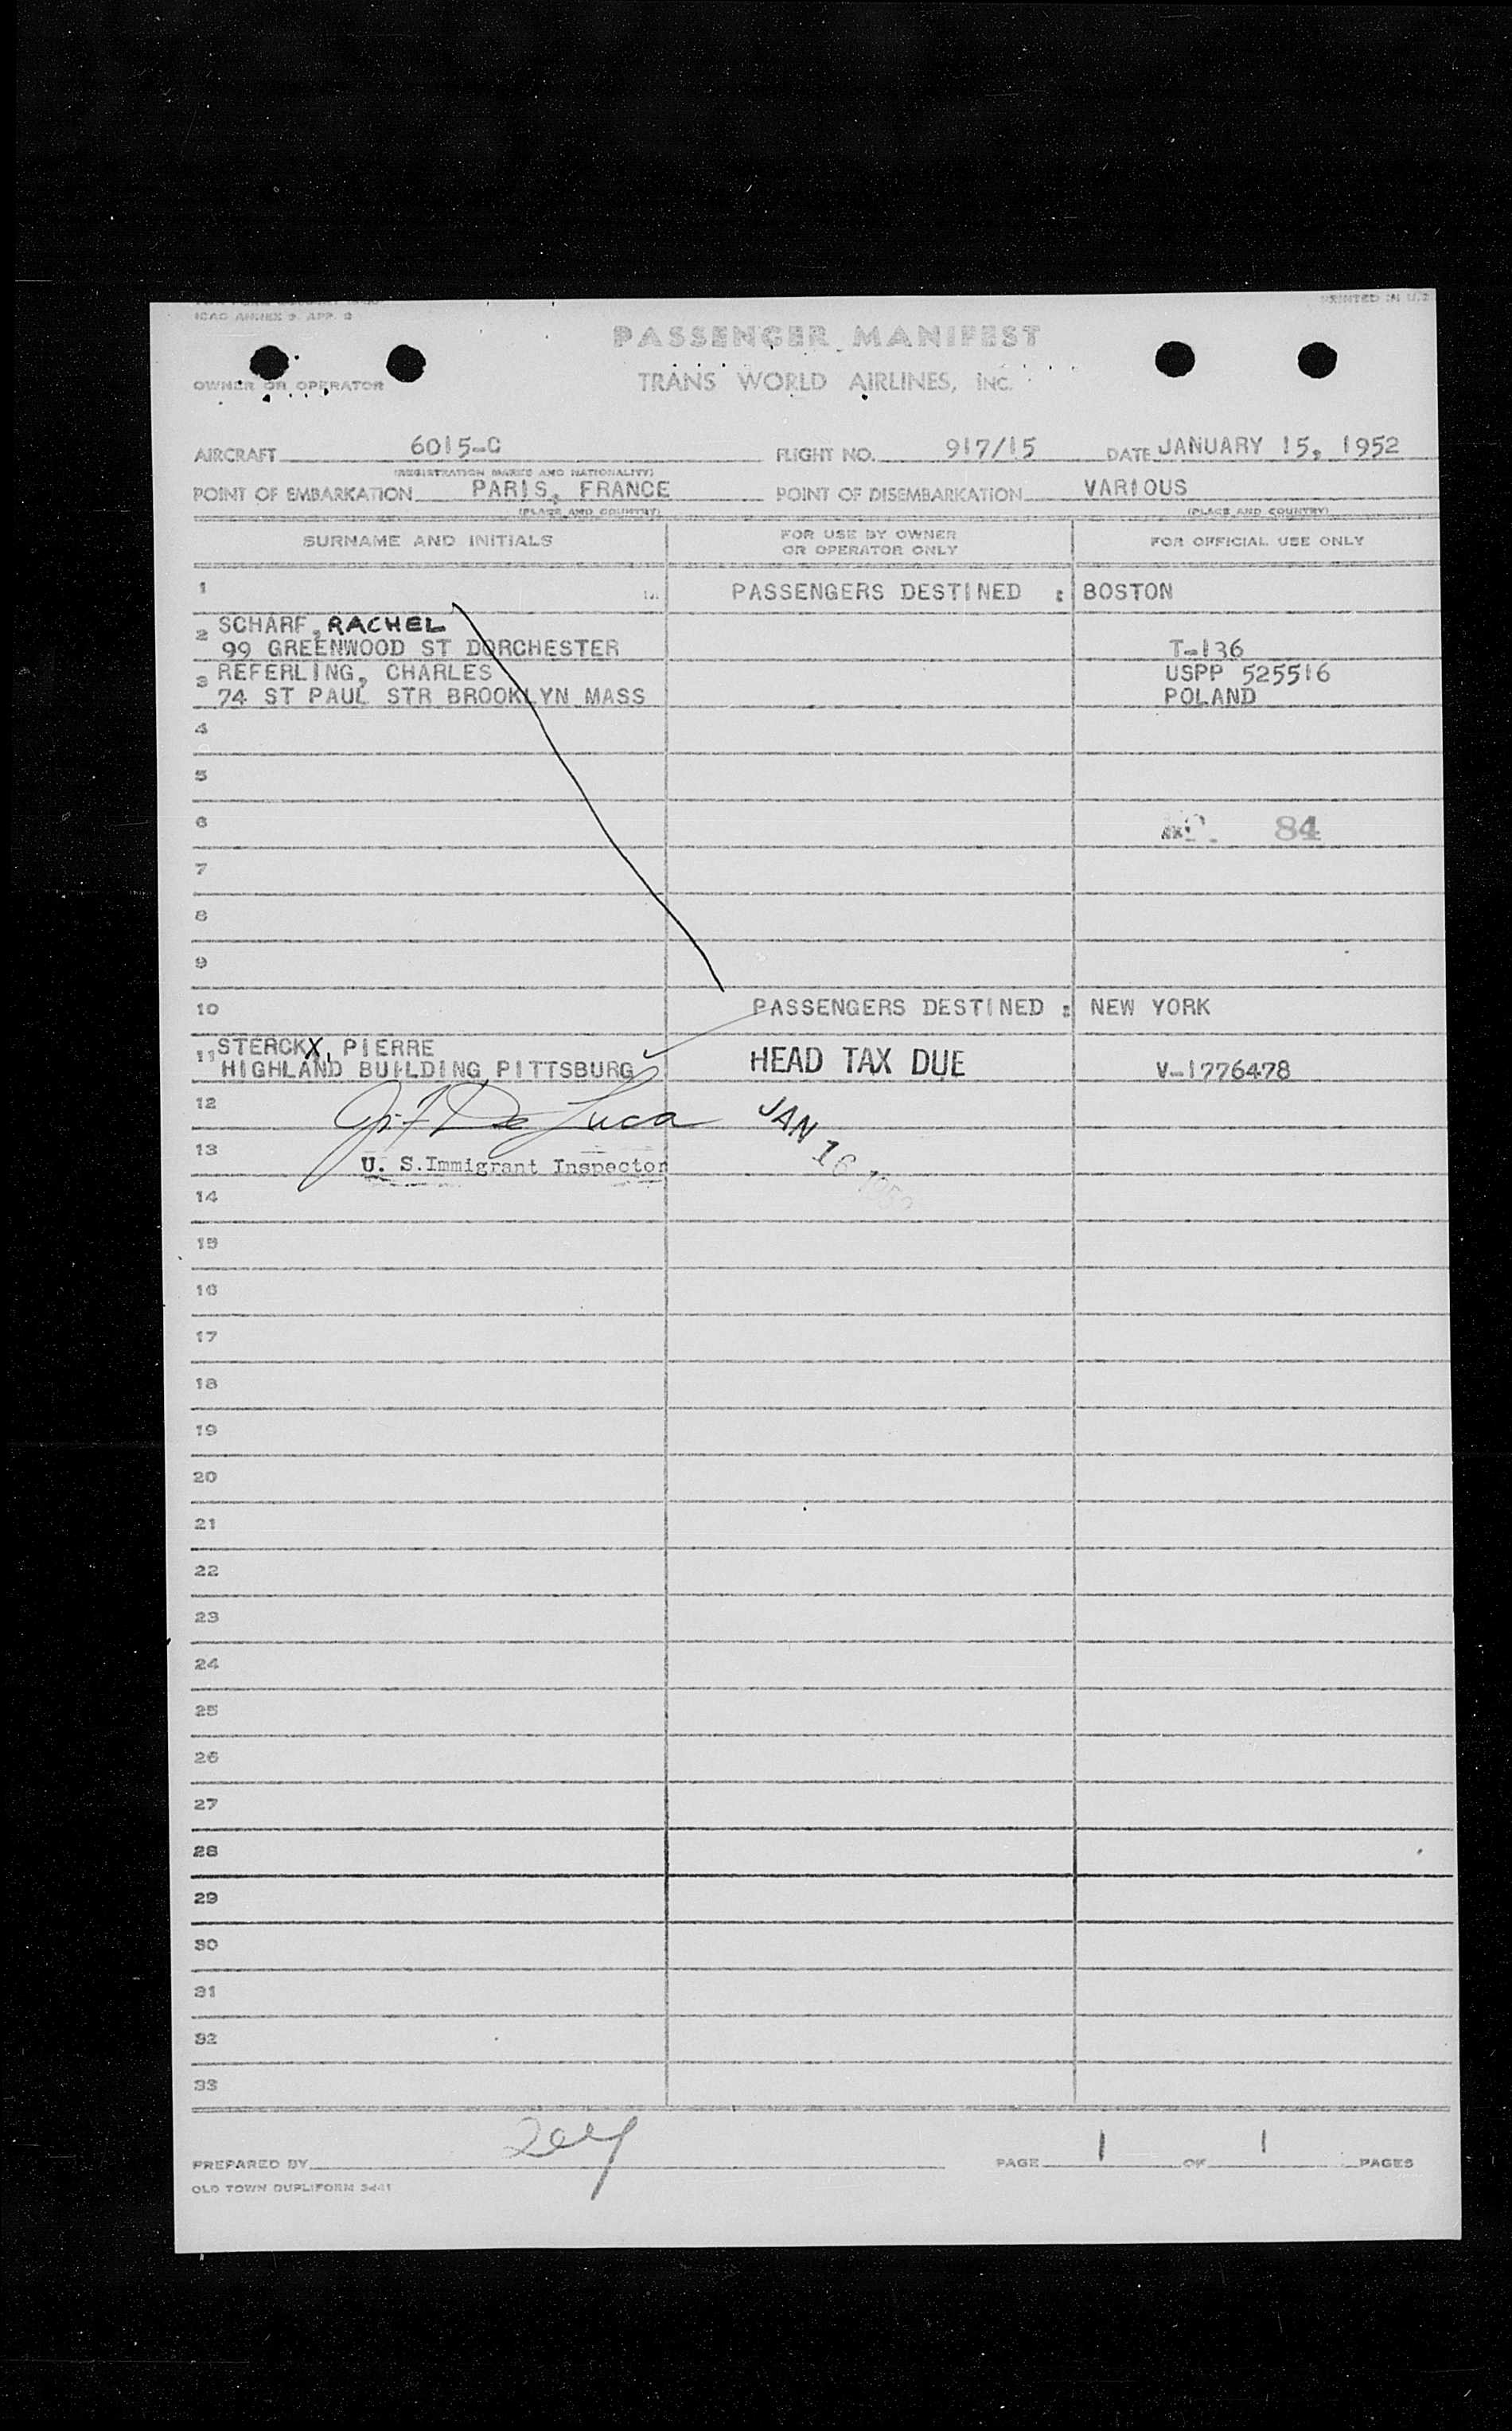 ICAO ANNEX 9 APP. 3
PRINTED IN U.S.
PASSENGER MANIFEST
OWNER OR OPERATOR TRANS WORLD AIRLINES, INC.
AIRCRAFT 6015-C FLIGHT NO. 917/15 DATE JANUARY 15, 1952
(REGISTRATION MARKS AND NATIONALITY)
POINT OF EMBARKATION PARIS, FRANCE POINT OF DISEMBARKATION VARIOUS
(PLACE AND COUNTRY) (PLACE AND COUNTRY)
SURNAME AND INITIALS FOR USE BY OWNER OR OPERATOR ONLY FOR OFFICIAL USE ONLY
1 PASSENGERS DESTINED : BOSTON
2 SCHARF, RACHEL
99 GREENWOOD ST DORCHESTER T-136
3 REFERLING, CHARLES USPP 525516
74 ST PAUL STR BROOKLYN MASS POLAND
4
5
6 84
7
8
9
10 PASSENGERS DESTINED : NEW YORK
11 STERCKX, PIERRE
HIGHLAND BUILDING PITTSBURG HEAD TAX DUE V-1776478
12 De Luca JAN 16 1952
13 U. S. Immigrant Inspector
14
15
16
17
18
19
20
21
22
23
24
25
26
27
28
29
30
31
32
33
PREPARED BY PAGE 1 OF 1 PAGES
OLD TOWN DUPLIFORM 3441